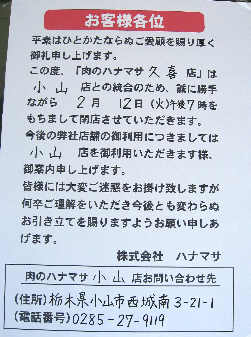 お客様各位
平素はひとかたならぬご愛顧を賜り厚く
御礼申し上げます。
この度、「肉のハナマサ 久喜 店」は
小山 店との統合のため、誠に勝手
ながら 2月 12日(火)午後7時を
もちまして閉店させていただきます。
今後の弊社店舗の御利用につきましては
小山 店を御利用いただきます様、
御案内申し上げます。
皆様には大変ご迷惑をお掛け致しますが
何卒ご理解をいただき今後とも変わらぬ
お引き立てを賜りますようお願い申しあ
げます。
株式会社 ハナマサ
肉のハナマサ 小山 店お問い合わせ先
(住所)栃木県小山市西城南3-21-1
(電話番号)0285-27-9119